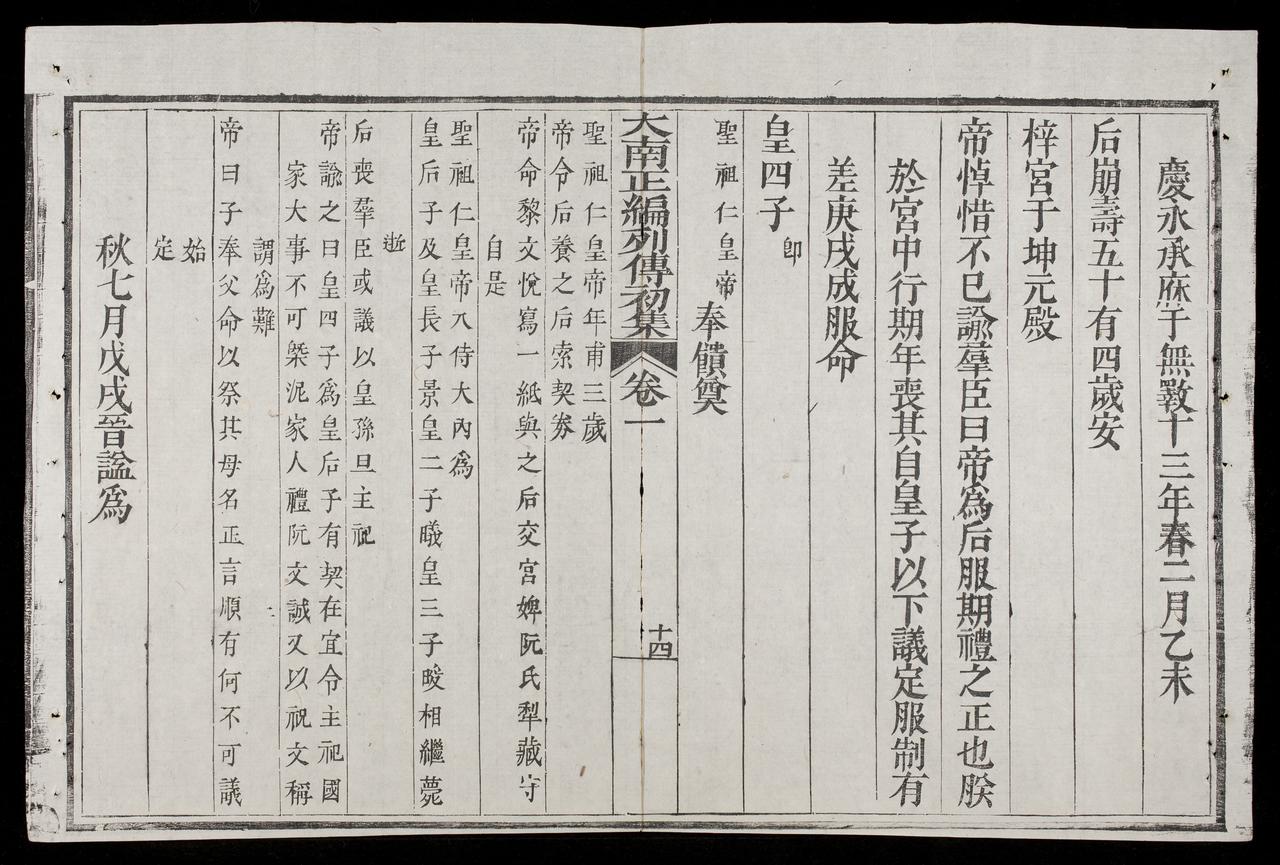 慶永承庥于無斁十三年春二月乙未
后崩壽五十有四歲安
梓宮于坤元殿
帝悼惜不已諭羣臣曰帝為后服期禮之正也朕
於宮中行期年喪其自皇子以下議定服制有
差庚戌成服命
皇四子卽
聖祖仁皇帝奉饋奠
大南正編列傳初集 卷一 十四
聖祖仁皇帝年甫三歲
帝令后養之后索契券
帝命黎文悅寫一紙與之后交宮婢阮氏犁藏守
自是
聖祖仁皇帝入侍大內為
皇后子及皇長子景皇二子曦皇三子㬉相繼薨
逝
后喪羣臣或議以皇孫旦主祀
帝諭之曰皇四子為皇后子有契在宜令主祀國
家大事不可槩泥家人禮阮文誠又以祝文稱
謂為難
帝曰子奉父命以祭其母名正言順有何不可議
始
定
秋七月戊戌晉謚為